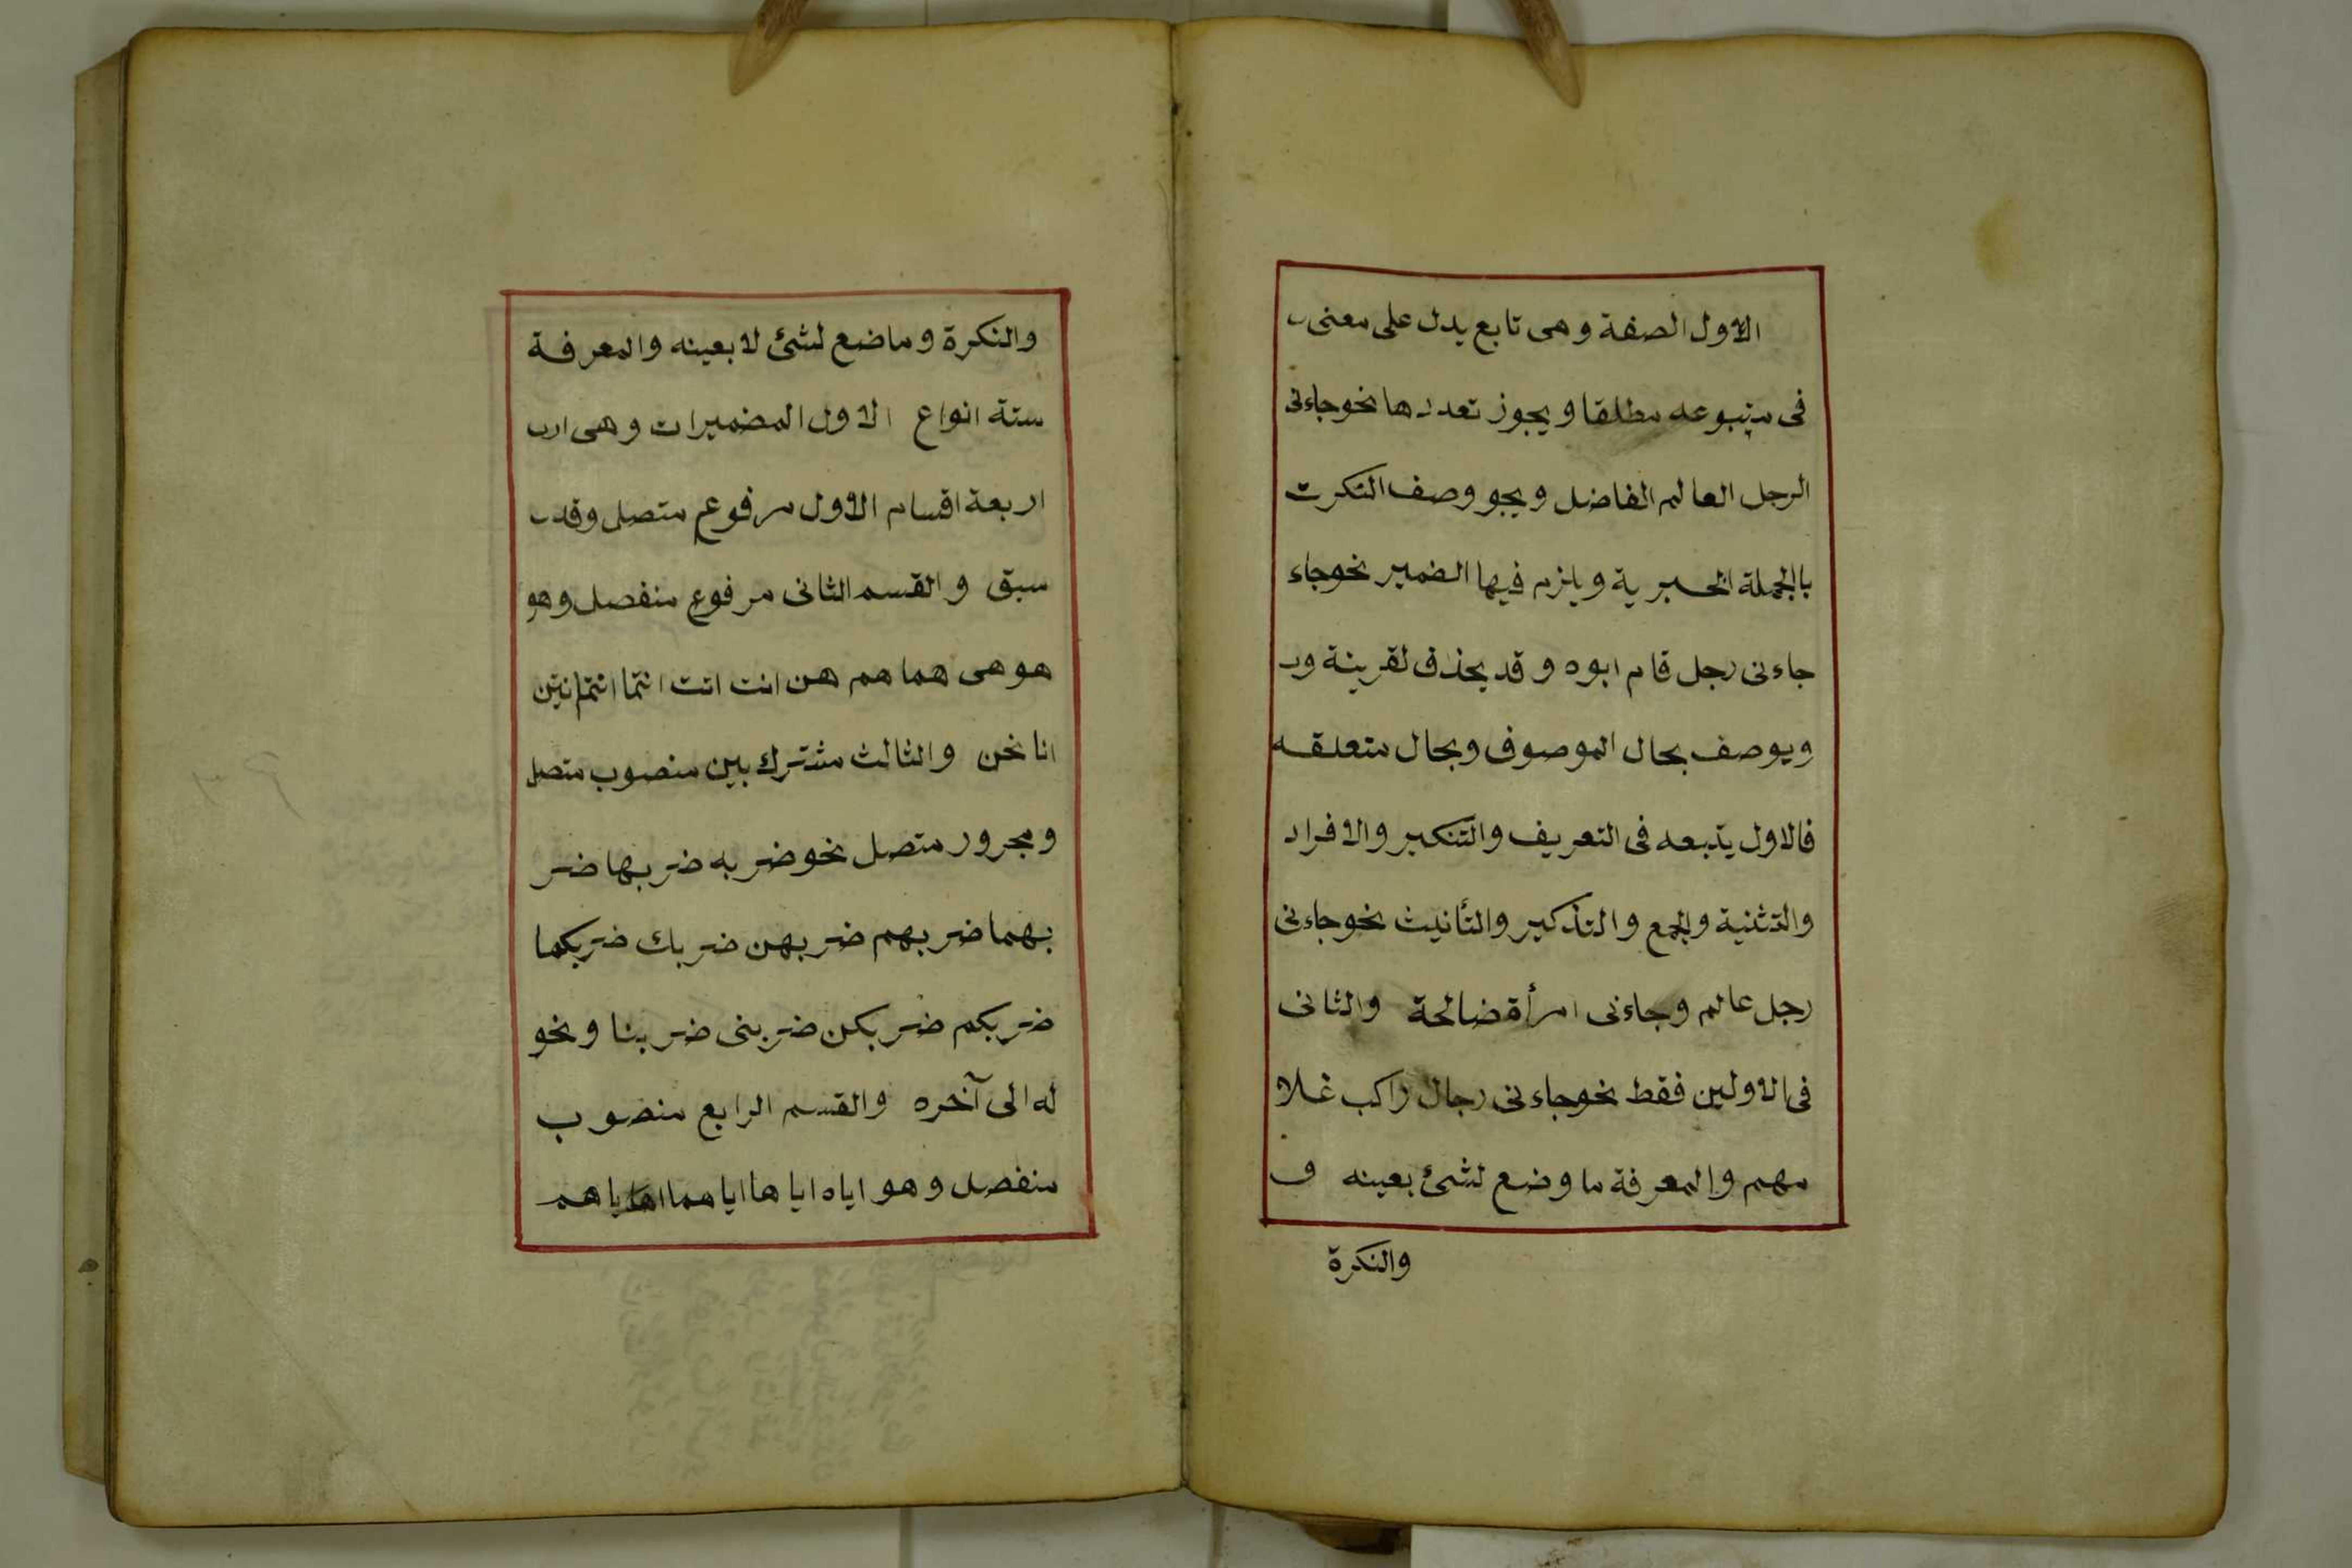 الاول الصفة وهى تابع يدل على معنى
فى متبوعه مطلقا ويجوز تعددها نحو جاءنى
الرجل العالم الفاضل ويجو وصف النكرت
باالجملة الخبرية ويلزم فيها الضمير نحو جاء
جاءنى رجل قام ابوه وقد يحذف لقرينة و
ويوصف بحال الموصوف وبحال متعلقه
فالاول يتبعه فى التعريف والتنكير والافراد
والتثنية والجمع والتذكير والتأنيث نحو جاءنى
رجل عالم وجاءنى امرأة ضالحة والثانى
فى الاولين فقط نحو جاءنى رجال راكب غلا
مهم والمعرفة ما وضع لشئ بعينه و
والنكرة
والنكرة وماضع لشئ لا بعينه والمعرفة
ستة انواع الاول المضميرات وهى ارب
اربعة اقسام الاول مرفوع متصل وقد
سبق والقسم الثانى مرفوع منفصل وهو
هو هى هما هم هن انت انت انتما انتم انتن
انا نحن والثالث مشترك بين منصوب متصل
ومجرور متصل نحو ضربه ضربها ضر
بهما ضربهم ضربهن ضربك ضربكما
ضربكم ضربكن ضربنى ضربنا ونحو
له الى آخره والقسم الرابع منصوب
منفصل وهو اياه اياها اياهما اياهم